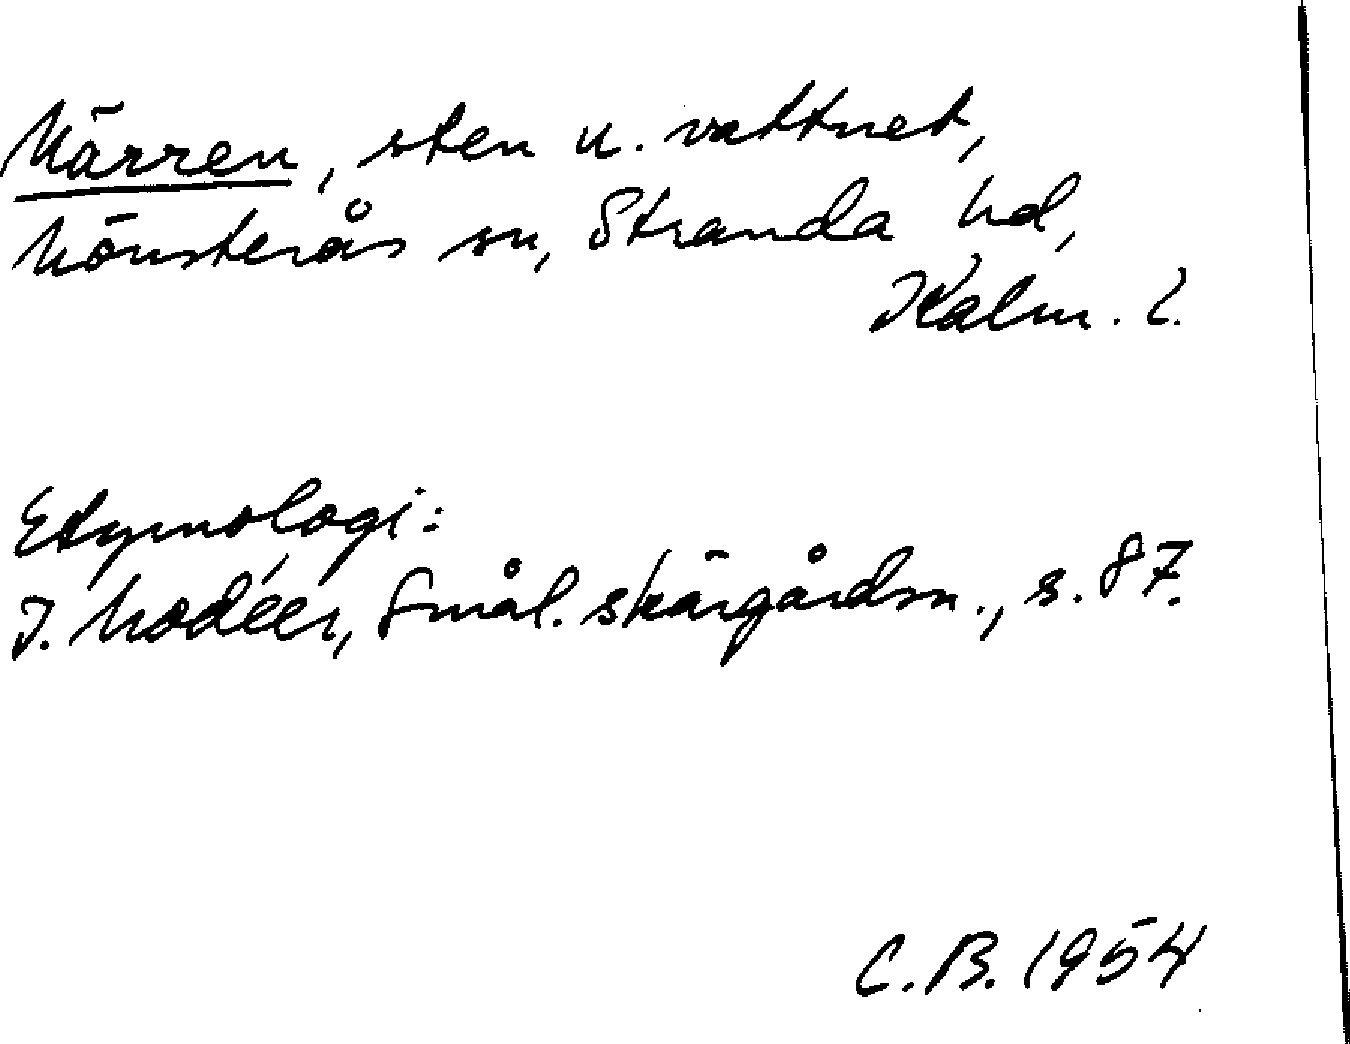 Märren, sten u. vattnet,
Mönsterås sn, Stranda hd,
Kalm. l.
Etymologi:
I. Modéer, Smål. skärgårdsn., s. 87.
C.B. 1954